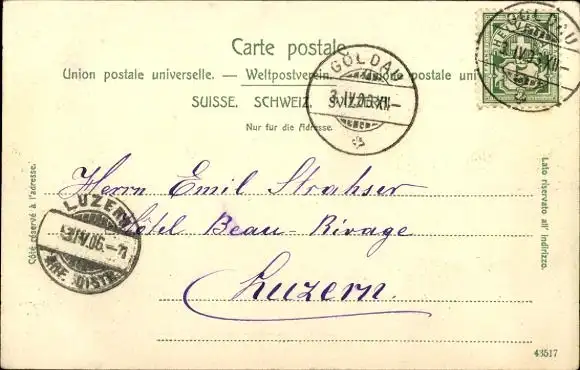 Carte postale.
Union postale universelle. — Weltpostverein. — Unione postale uni
SUISSE. SCHWEIZ. SVIZZERA.
Nur für die Adresse.
GOLDAU
3.IV.06.XII—
GOLDAU
HELVETIA
IV.06.XII
Côté réservé à l'adresse.
Lato riservato all' indirizzo.
Herrn Emil Strahser
Hôtel Beau-Rivage
Luzern.
LUZERN
3.IV.06.
DIST.
43517